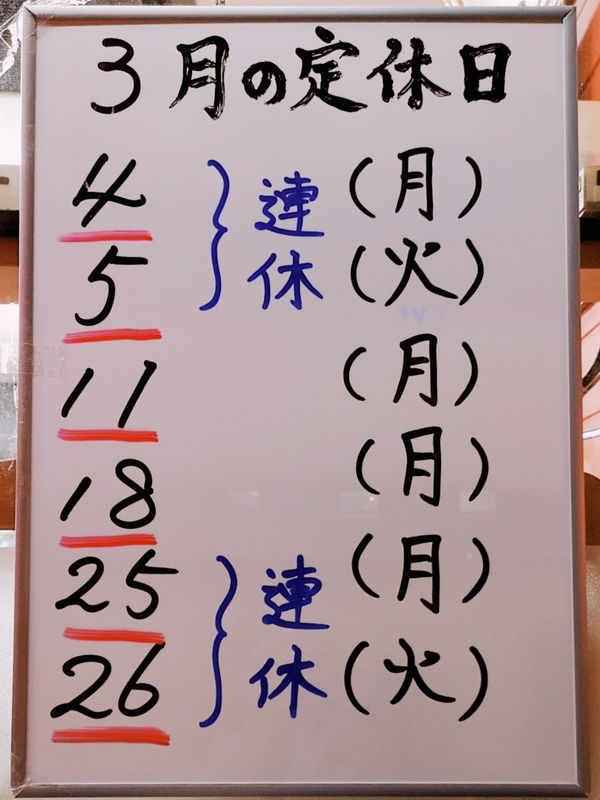 3月の定休日
4 連 (月)
5 休 (火)
11 (月)
18 (月)
25 連 (月)
26 休 (火)